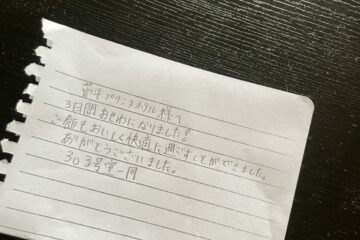 菅平プリンスホテル様へ
3日間お世わになりました!
ご飯もおいしく快適に過ごすことができました。
ありがとうございました。
303号室一同